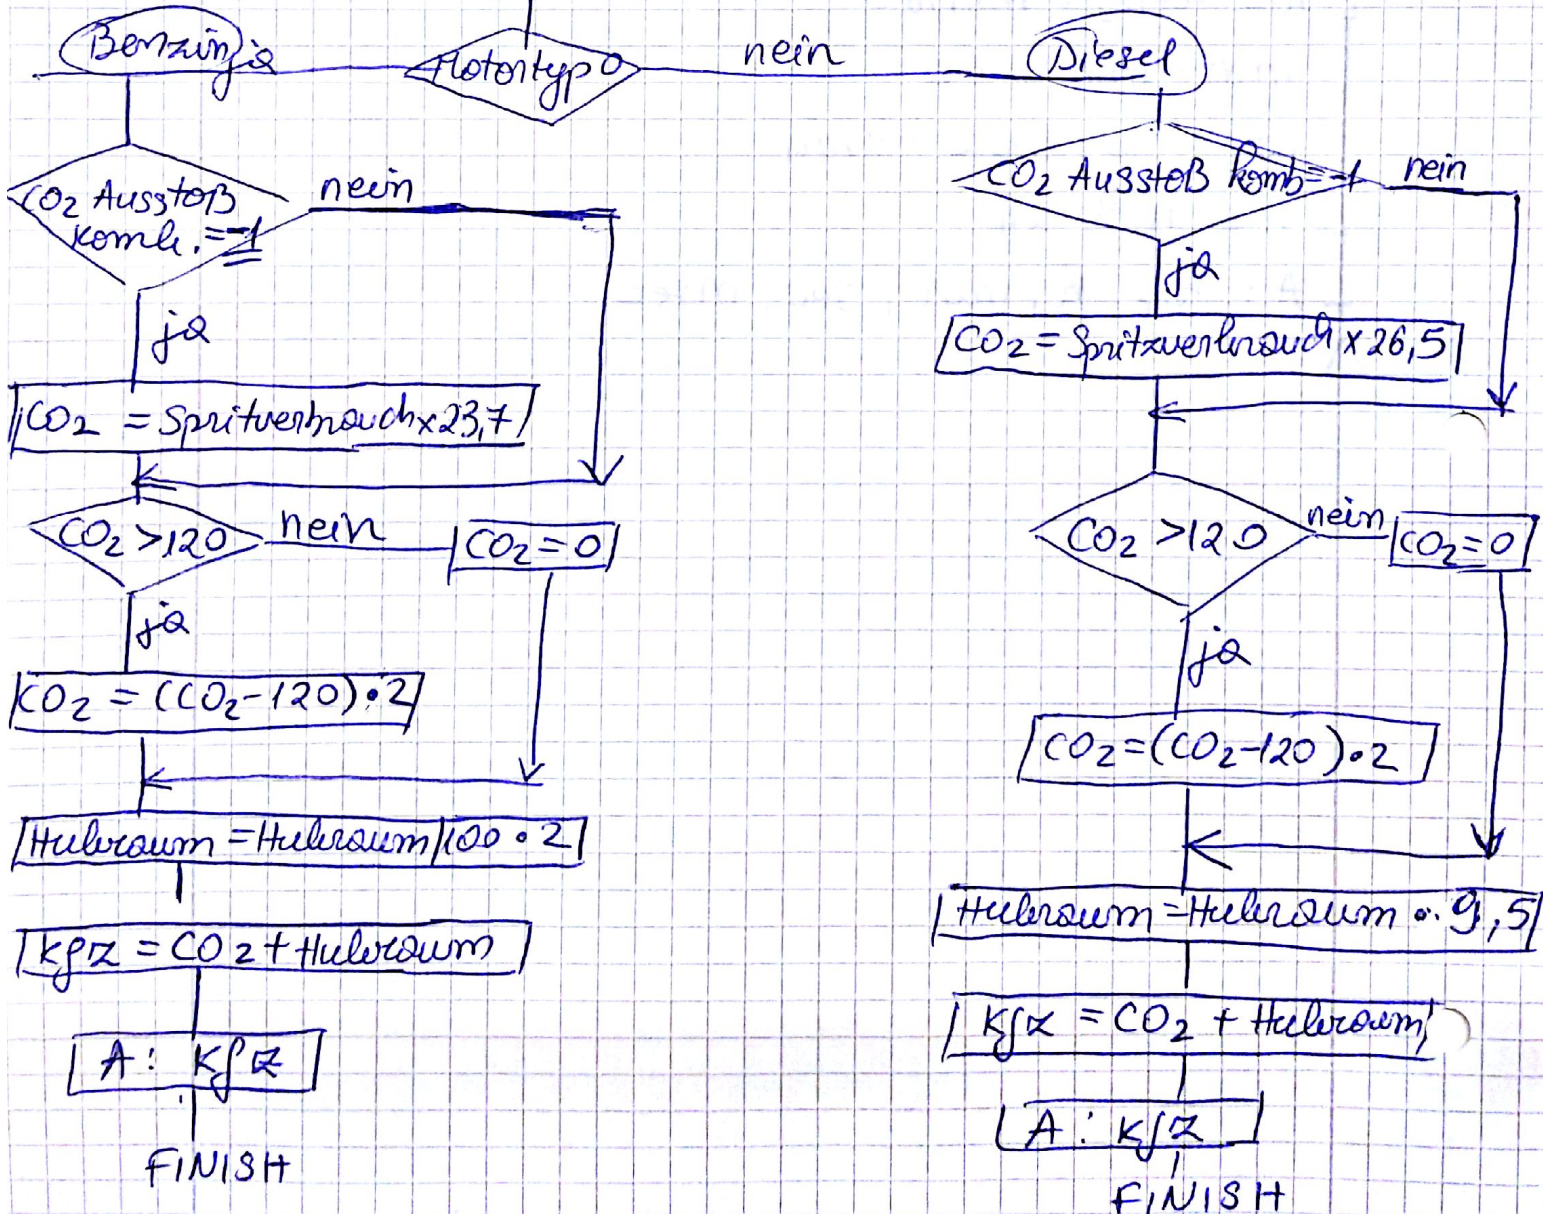 Benzin ja
Motortyp 0
nein
Diesel
CO2 Ausstoß
komb. = -1
nein
ja
CO2 = Spritverbrauch x 23,7
CO2 > 120
nein
CO2 = 0
ja
CO2 = (CO2 - 120) · 2
Hubraum = Hubraum/100 · 2
kfz = CO2 + Hubraum
A: kfz
FINISH
CO2 Ausstoß komb = -1
nein
ja
CO2 = Spritzverbrauch x 26,5
CO2 > 120
nein
CO2 = 0
ja
CO2 = (CO2 - 120) · 2
Hubraum = Hubraum · 9,5
kfz = CO2 + Hubraum
A: kfz
FINISH